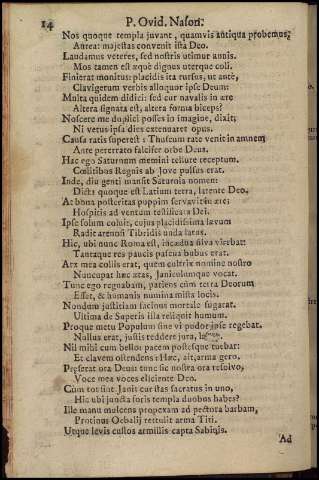 14 P. Ovid. Nason.
Nos quoque templa juvant, quamvis antiqua probemus,
Aurea: majestas convenit ista Deo.
Laudamus veteres, sed nostris utimur annis.
Mos tamen est æquè dignus uterque coli.
Finierat monitus: placidis ita rursus, ut antè,
Clavigerum verbis alloquor ipse Deum:
Multa quidem didici: sed cur navalis in ære
Altera signata est, altera forma biceps?
Noscere me duplici posses in imagine, dixit;
Ni vetus ipsa dies extenuaret opus.
Causa ratis superest: Thuscum rate venit in amnem
Ante pererrato falcifer orbe Deus.
Hac ego Saturnum memini tellure receptum.
Cœlitibus Regnis ab Jove pulsus erat.
Inde, diu genti mansit Saturnia nomen:
Dicta quoque est Latium terra, latente Deo.
At bona posteritas puppim servavit in ære;
Hospitis ad ventum testificata Dei.
Ipse solum colui, cujus placidissima lævum
Radit arenosi Tibridis unda latus.
Hic, ubi nunc Roma est, incædua silva vierbat:
Tantaque res paucis pascua bubus erat.
Arx mea collis erat, quem cultrix nomine nostro
Nuncupat hæc ætas, Janiculumque vocat.
Tunc ego regnabam, patiens cùm terra Deorum
Esset, & humanis numina mista locis.
Nondum justitiam facinus mortale fugarat.
Ultima de Superis illa reliquit humum.
Proque metu Populum sine vi pudor ipse regebat.
Nullus erat, justis reddere jura, labor.
Nil mihi cum bello: pacem postesque tuebar:
Et clavem ostendens: Hæc, ait, arma gero.
Presserat ora Deus: tunc sic nostra ora resolvo,
Voce mea voces eliciente Deo.
Cùm tot sint Jani: cur stas sacratus in uno,
Hic ubi juncta foris templa duobus habes?
Ille manu mulcens propexam ad pectora barbam,
Protinus Oebalij rettulit arma Titi.
Utque levis custos armillis capta Sabinis.
Ad